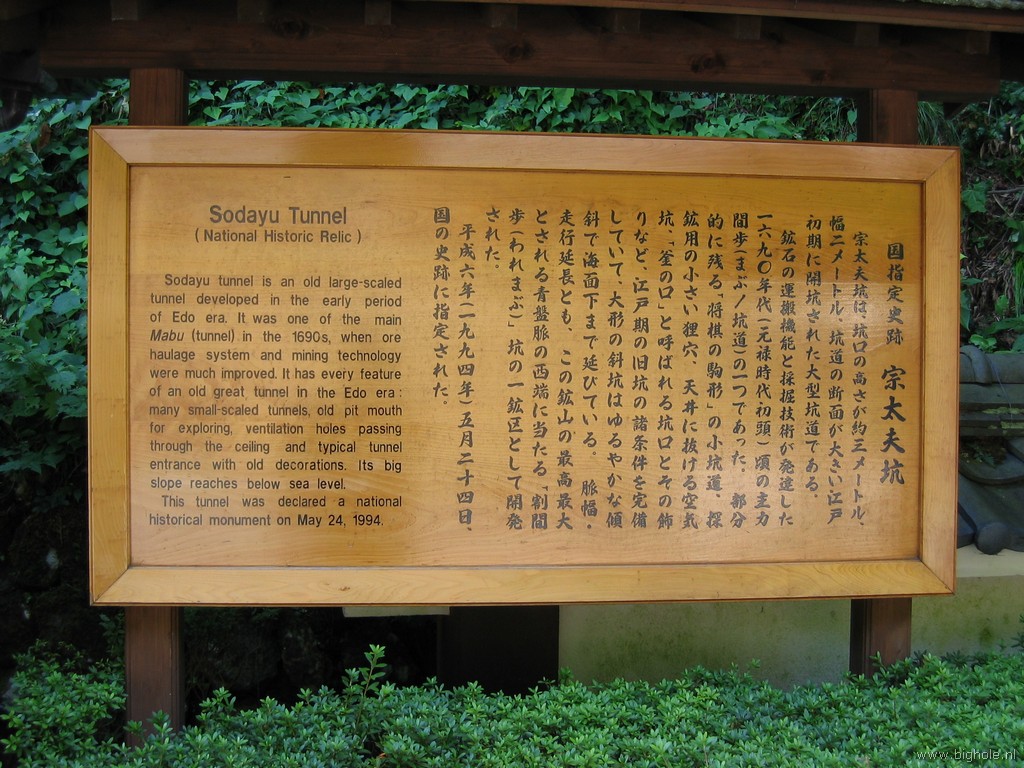 Sodayu Tunnel
( National Historic Relic )
Sodayu tunnel is an old large-scaled
tunnel developed in the early period
of Edo era. It was one of the main
Mabu (tunnel) in the 1690s, when ore
haulage system and mining technology
were much improved. It has every feature
of an old great tunnel in the Edo era :
many small-scaled tunnels, old pit mouth
for exploring, ventilation holes passing
through the ceiling and typical tunnel
entrance with old decorations. Its big
slope reaches below sea level.
This tunnel was declared a national
historical monument on May 24, 1994.
国指定史跡 宗太夫坑
宗太夫坑は、坑口の高さが約三メートル、
幅二メートル、坑道の断面が大きい江戸
初期に開坑された大型坑道である。
鉱石の運搬機能と採掘技術が発達した
一六九〇年代(元禄時代初頭)頃の主力
間歩(まぶ/坑道)の一つであった、部分
的に残る「将棋の駒形」の小坑道、探
鉱用の小さい狸穴、天井に抜ける空気
坑、「釜の口」と呼ばれる坑口とその飾
りなど、江戸期の旧坑の諸条件を完備
していて、大形の斜坑はゆるやかな傾
斜で海面下まで延びている。 脈幅・
走行延長とも、この鉱山の最高最大
とされる青盤脈の西端に当たる「割間
歩(われまぶ)」坑の一鉱区として開発
された。
平成六年(一九九四年)五月二十四日、
国の史跡に指定された。
www.bighole.nl